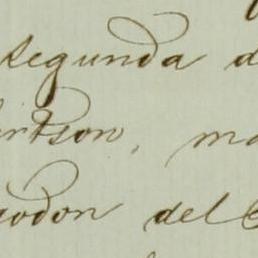 segunda d
ertson, ma
godon del